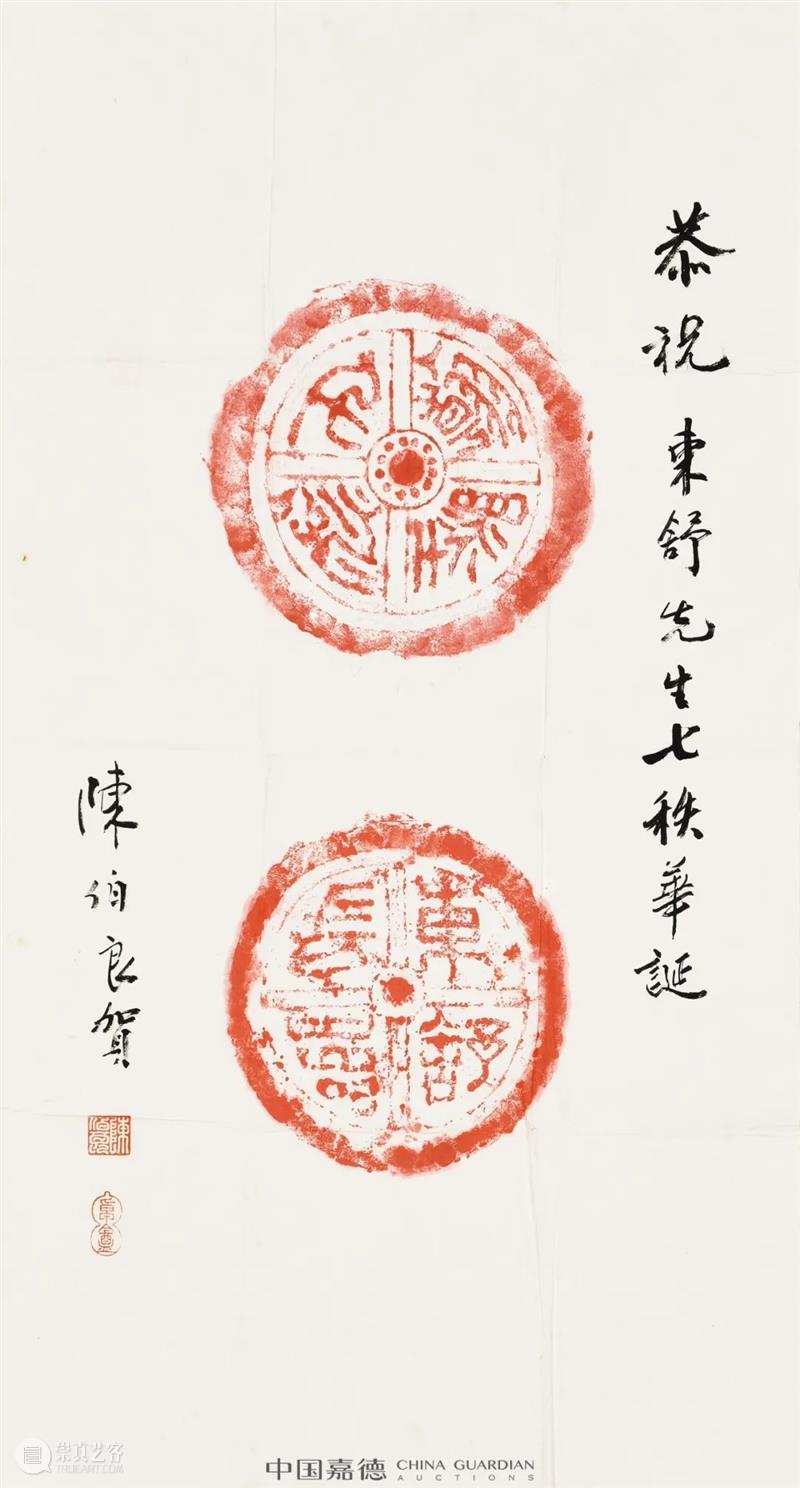 恭祝 東舒先生七秩華誕
東舒長壽
陳伯良賀
陳伯良
崇真艺客
WWW.TRUEART.COM
中国嘉德 CHINA GUARDIAN
AUCTIONS